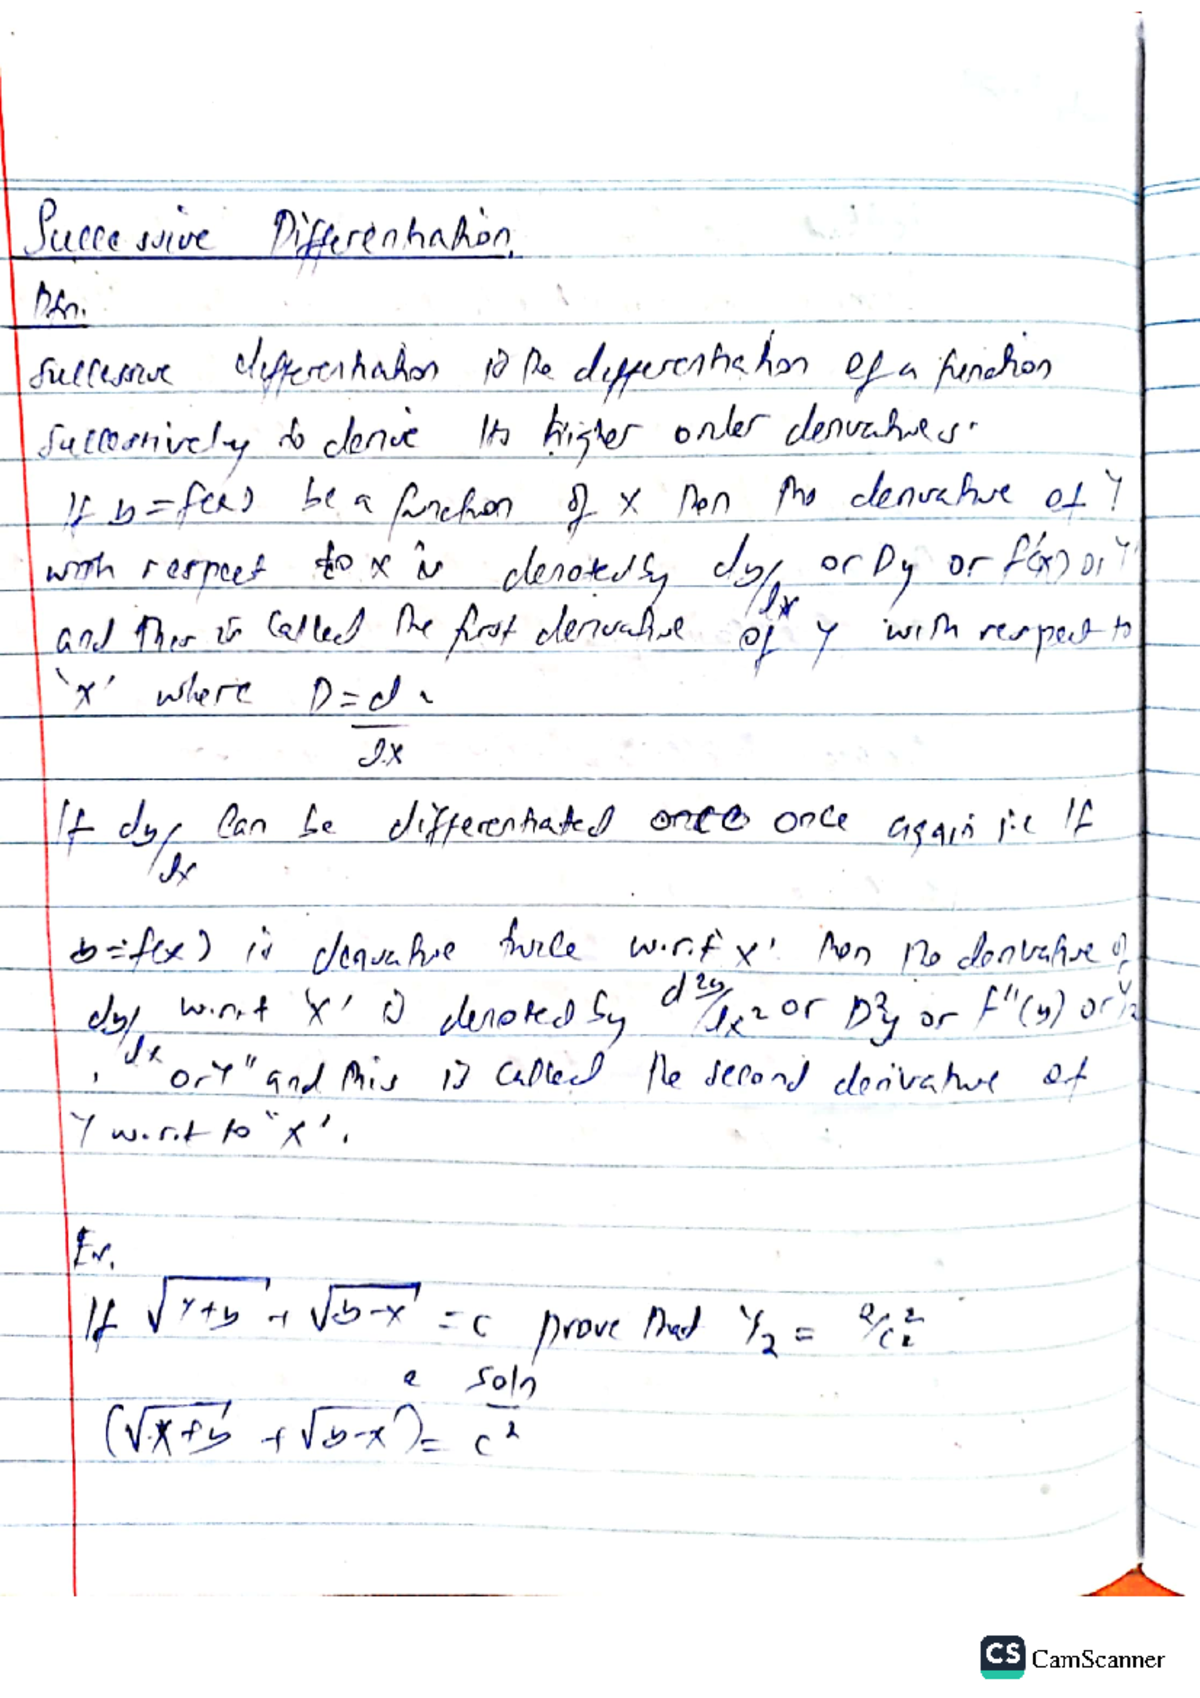 Successive Differentiation.
Dfn.
Successive differentiation is the differentiation of a function
successively to derive its higher order derivatives.
If y=f(x) be a function of x then the derivative of Y
with respect to x is denoted by dy/dx or Dy or f'(x) or Y'
and this is called the first derivative of Y with respect to
'x' where D = d/dx
If dy/dx can be differentiated once again i.e If
y=f(x) is derivative twice w.r.t x' then the derivative of
dy/dx w.r.t 'x' is denoted by d²y/dx² or D²y or f"(y) or Y2
or Y" and this is called the second derivative of
Y w.r.t to "x'.
Ex.
If √x+y + √y-x = c prove that Y2 = 2/c²
soln
(√x+y + √y-x)² = c²
CS CamScanner